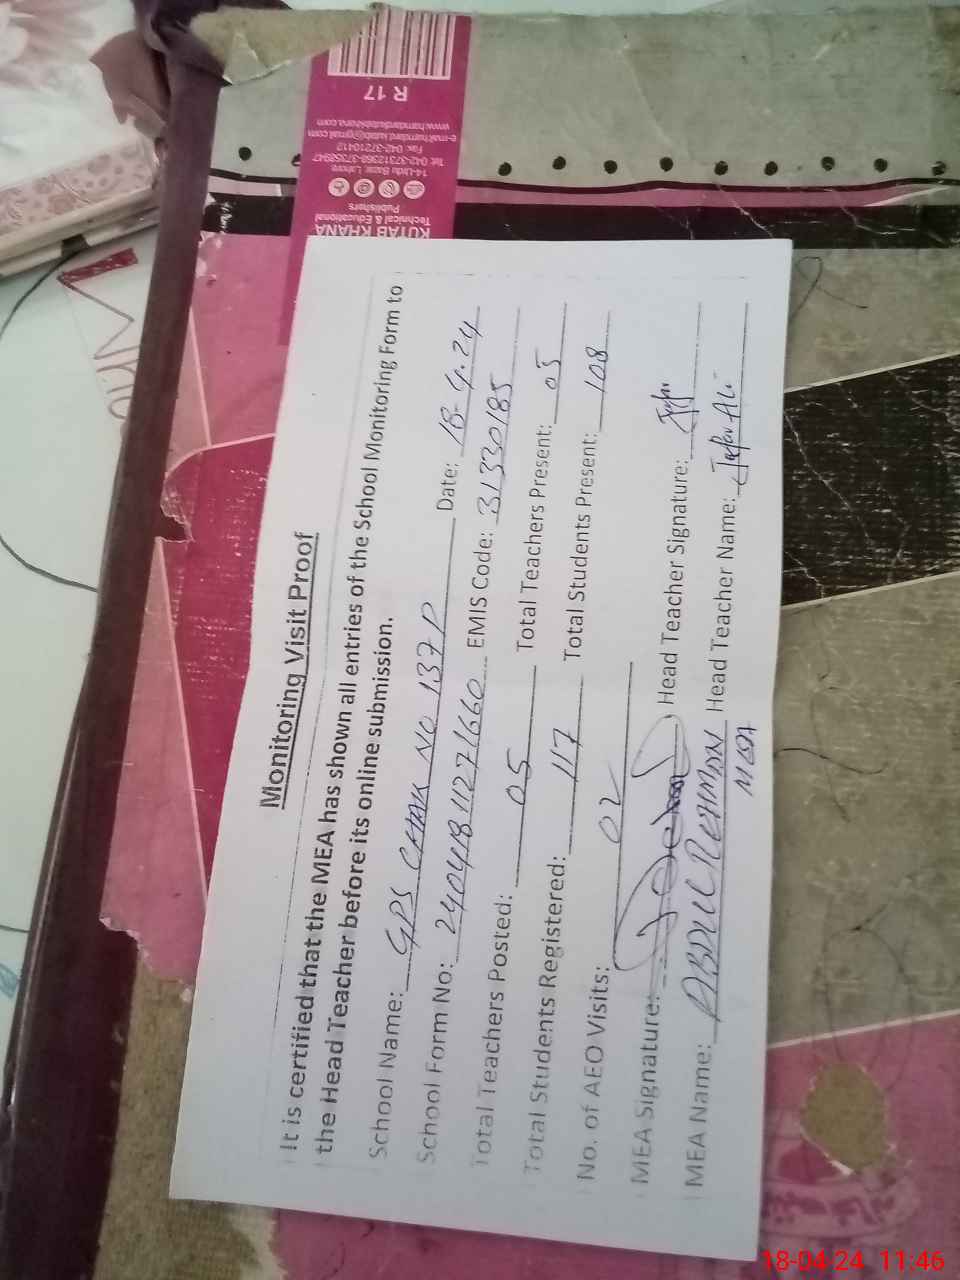 Monitoring Visit Proof
It is certified that the MEA has shown all entries of the School Monitoring Form to
the Head Teacher before its online submission.
School Name: GPS CHAK NO 137 P Date: 18-4.24
School Form No: 24041811271660 EMIS Code: 31330185
Total Teachers Posted: 05 Total Teachers Present: 05
Total Students Registered: 117 Total Students Present: 108
No. of AEO Visits: 02
MEA Signature: Head Teacher Signature:
MEA Name: ABDUL REHMAN Head Teacher Name: Jafar Ali
KUTAB KHANA
Technical & Educational
Publishers
14-Urdu Bazar, Lahore
Tel: 042-37312368-37358947
Fax: 042-37210412
e-mail:hamdard.kutab@gmail.com
www.hamdardkutabkhana.com
R 17
18-04-24 11:46